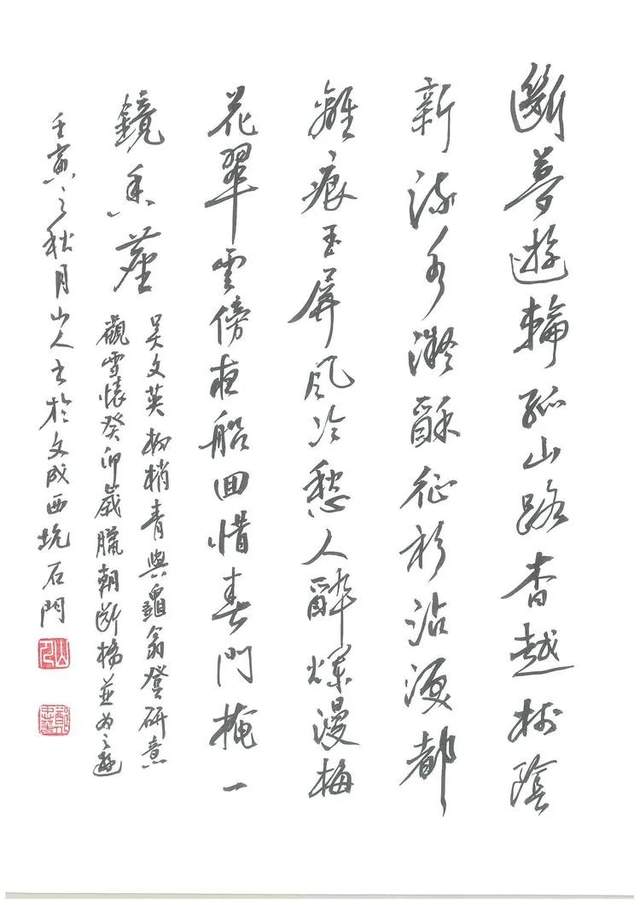 斷夢遊輪孤山路杳越樹陰
新流水凝酥征衫沾淚都
離痕玉屏風冷愁人醉爛漫梅
花翠雲傍夜船回惜春門掩一
鏡香塵
吳文英柳梢青與龜翁登研意
觀雪懷癸卯歲臘朝斷橋並馬之遊
壬寅之秋月山人書於文成西坑石門